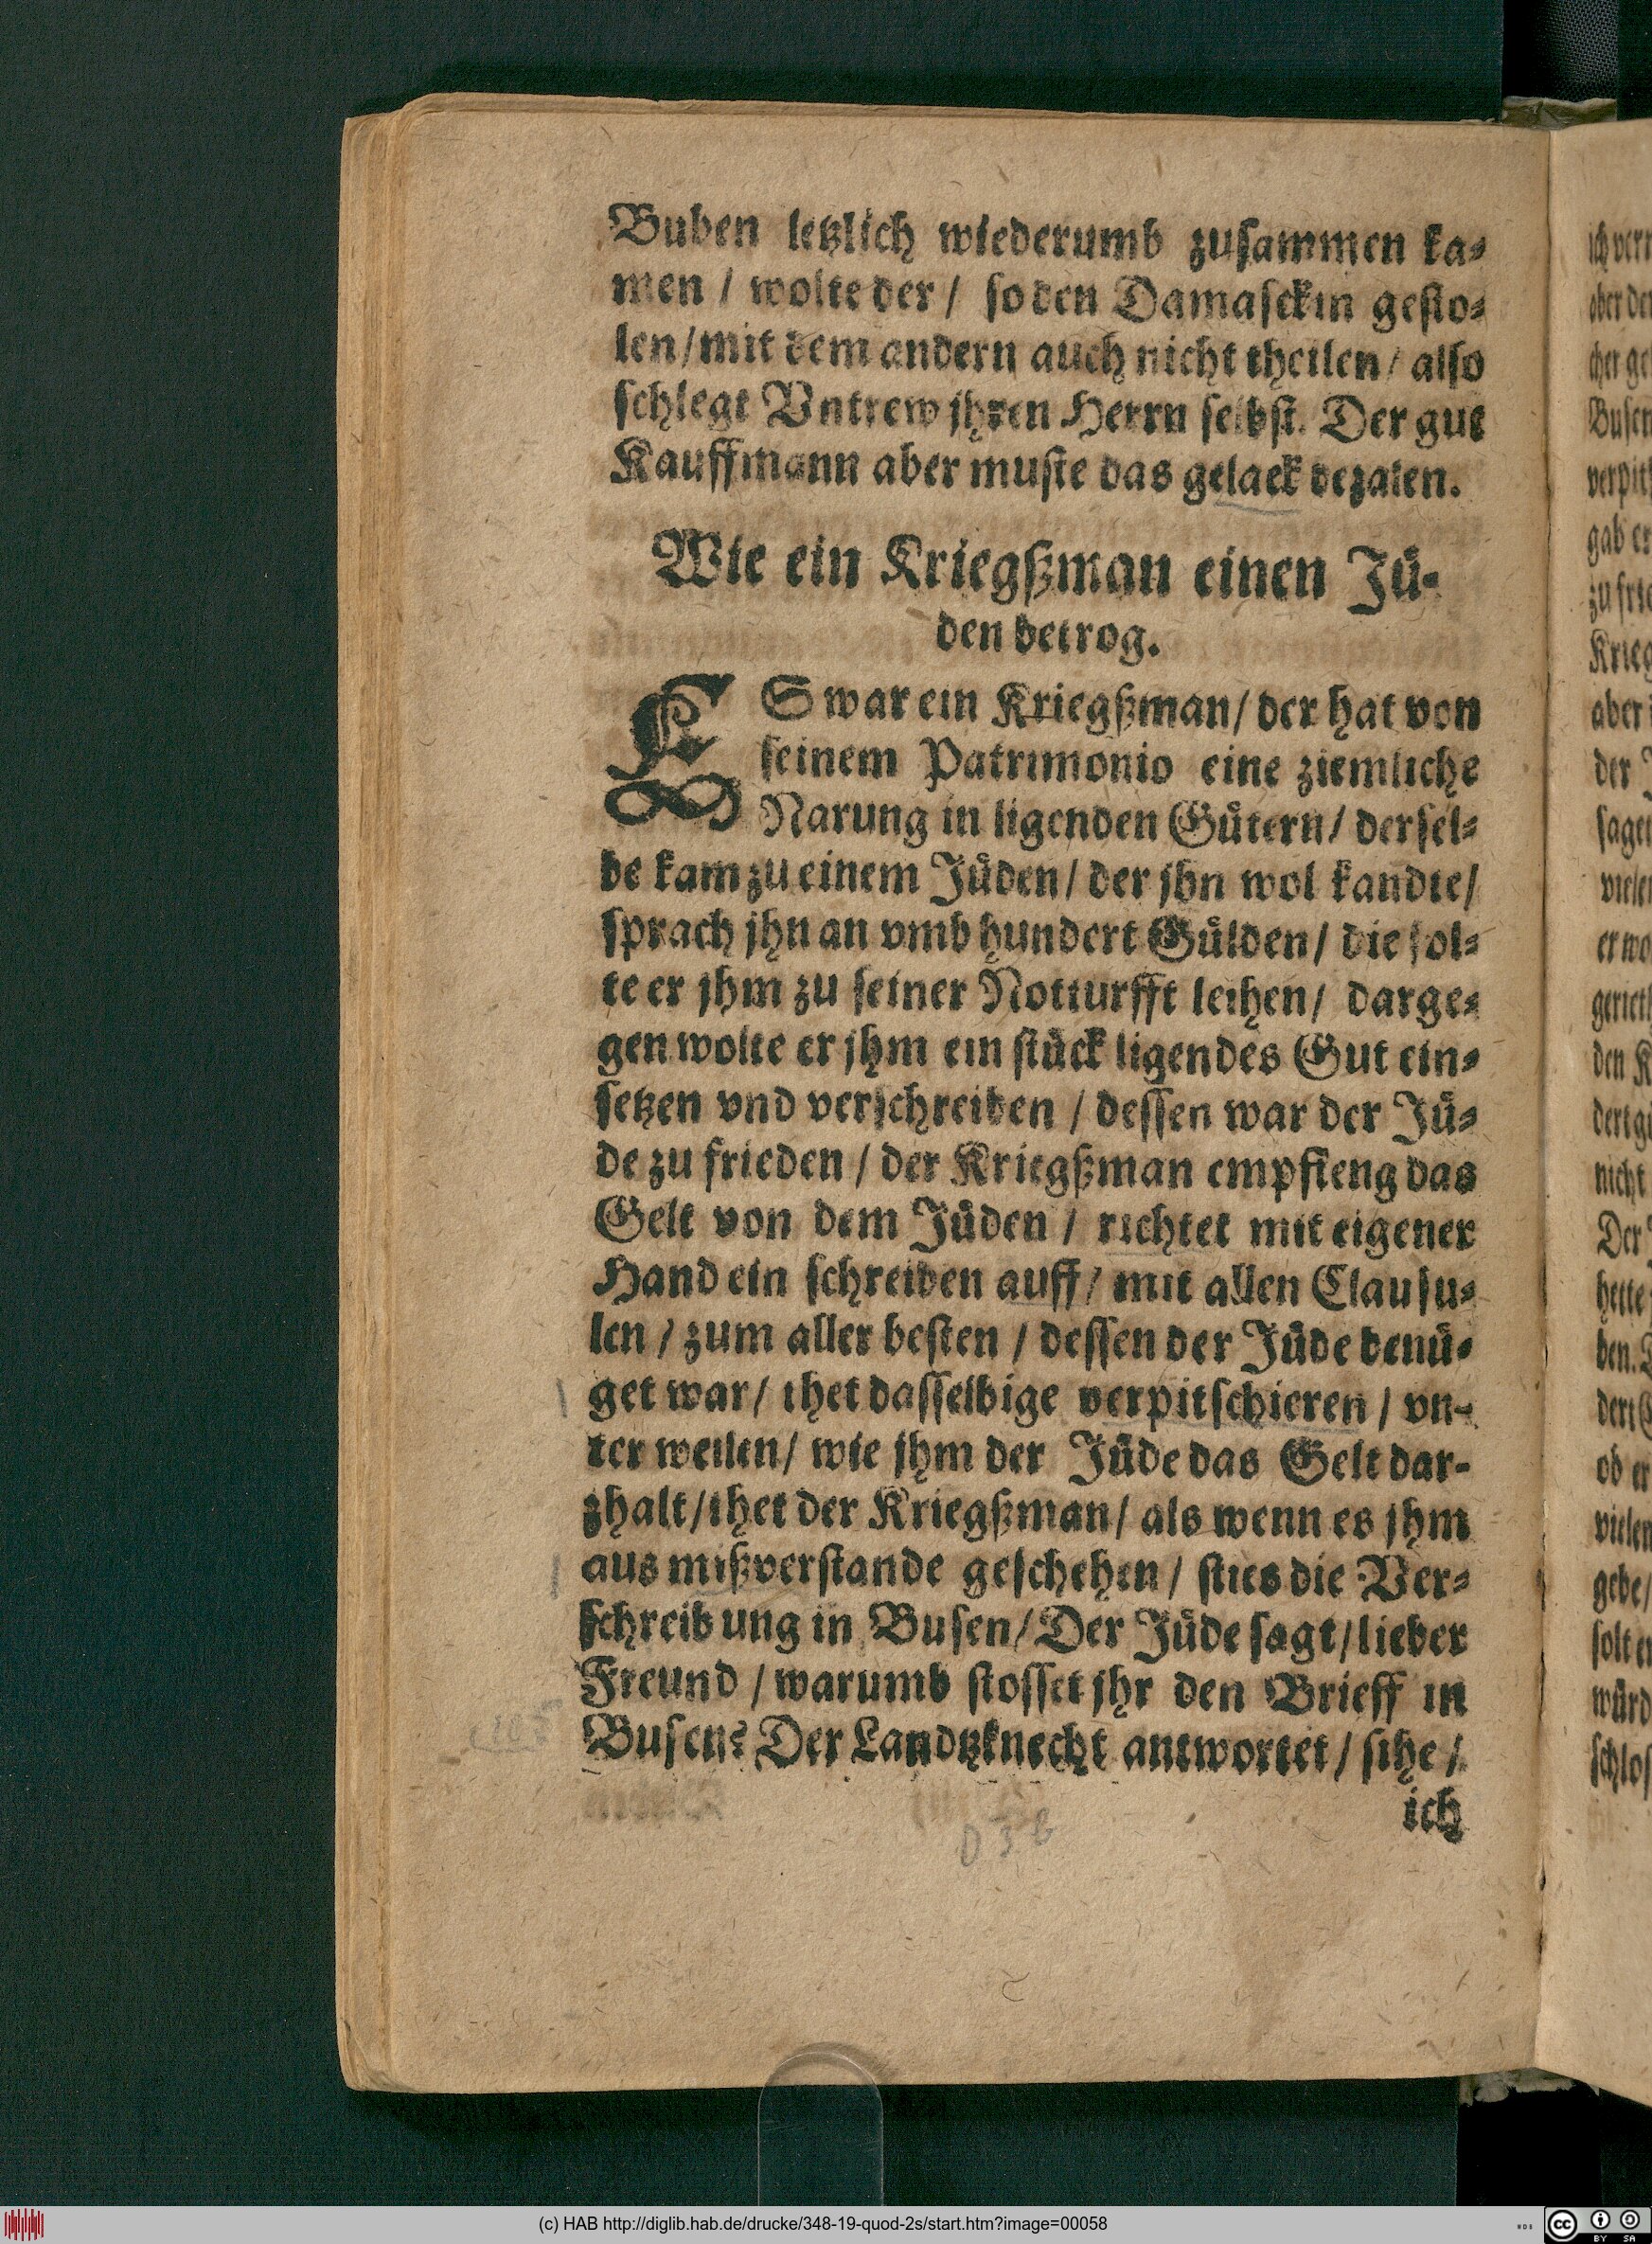 Buben letzlich wiederumb zusammen ka⸗
men / wolte der / so den Damasckin gesto⸗
len / mit dem andern auch nicht theilen / also
schlegt Vntrew jhren Herrn selbst. Der gut
Kauffmann aber muste das gelack bezalen.
Wie ein Kriegßman einen Juͤ⸗
den betrog.
ES war ein Kriegßman / der hat von
seinem Patrimonio eine ziemliche
Narung in ligenden Guͤtern / dersel⸗
be kam zu einem Juͤden / der jhn wol kandte /
sprach jhn an vmb hundert Guͤlden / die sol⸗
te er jhm zu seiner Notturfft leihen / darge⸗
gen wolte er jhm ein stuͤck ligendes Gut ein⸗
setzen vnd verschreiben / dessen war der Juͤ⸗
de zu frieden / der Kriegßman empfieng das
Gelt von dem Juͤden / richtet mit eigener
Hand ein schreiben auff / mit allen Clausu⸗
len / zum aller besten / dessen der Juͤde benuͤ⸗
get war / thet dasselbige verpitschieren / vn⸗
ter weilen / wie jhm der Juͤde das Gelt dar⸗
zhalt / thet der Kriegßman / als wenn es jhm
aus mißverstande geschehen / sties die Ver⸗
schreibung in Busen / Der Juͤde sagt / lieber
Freund / warumb stosset jhr den Brieff in
Busen? Der Landtzknecht antwortet / sihe /
ich
D 3 b
(c) HAB http://diglib.hab.de/drucke/348-19-quod-2s/start.htm?image=00058